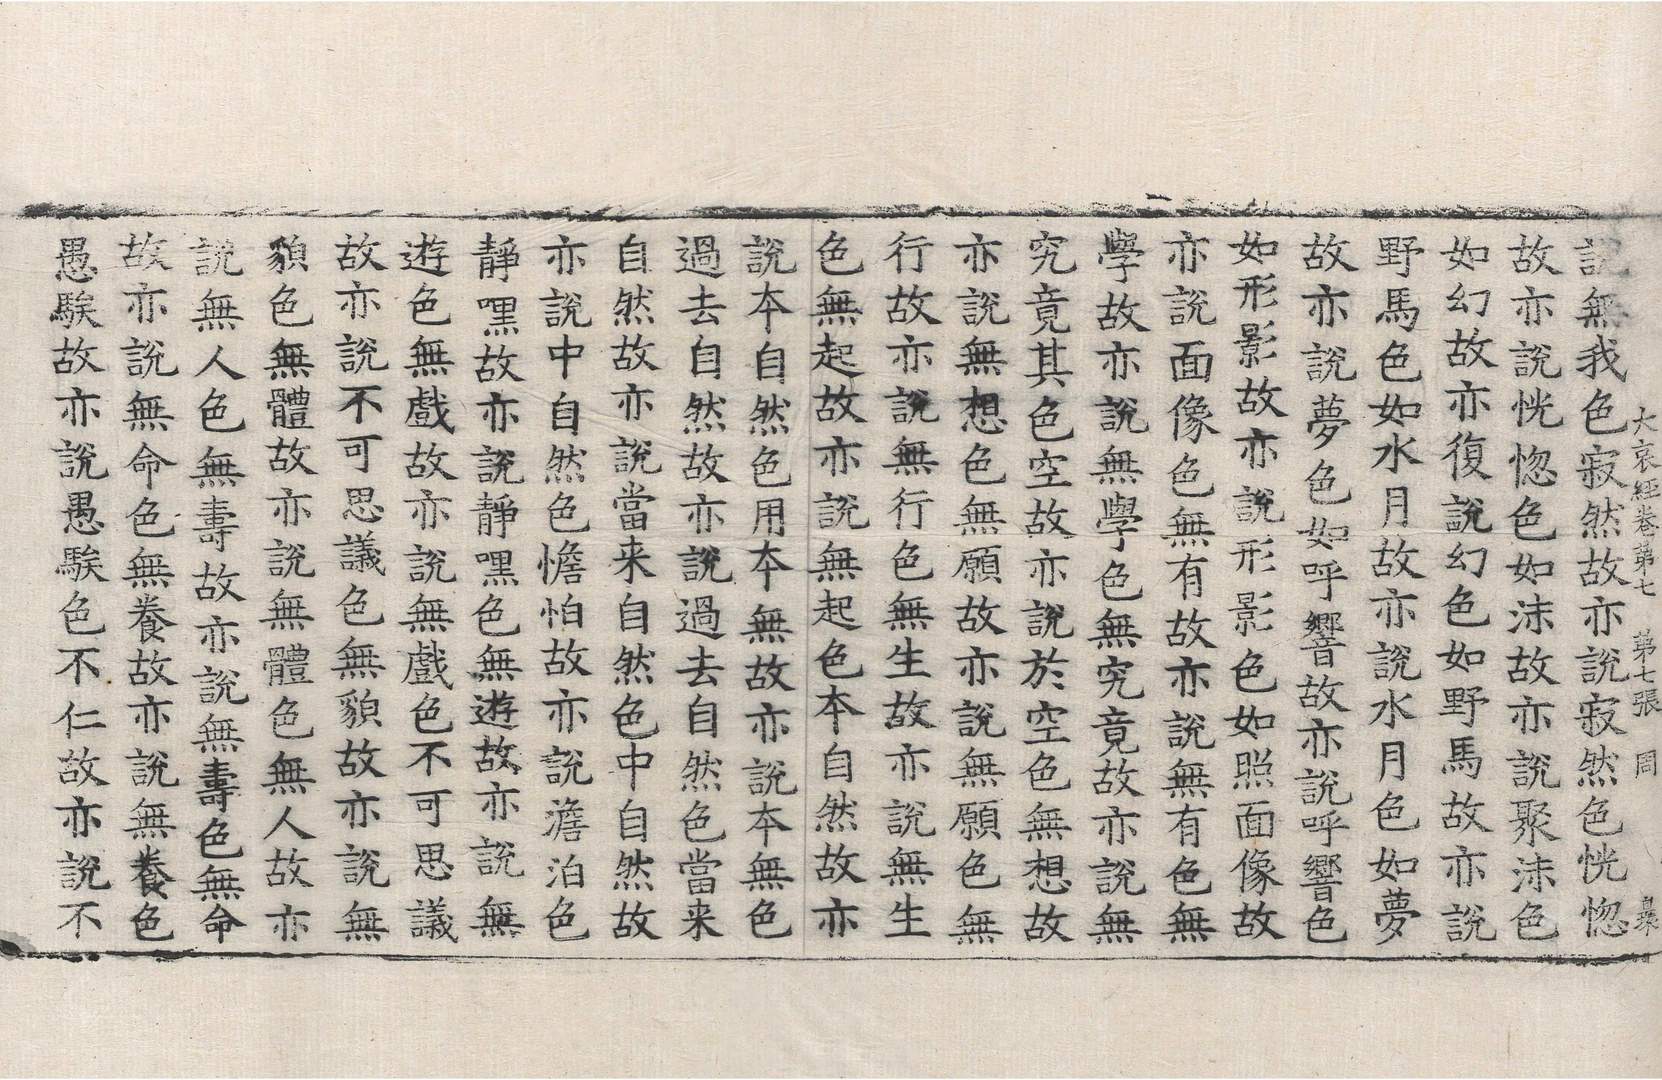 大哀経卷第七 第七張 周
説無我色寂然故亦説寂然色恍惚
故亦説恍惚色如沫故亦説聚沫色
如幻故亦復説幻色如野馬故亦説
野馬色如水月故亦説水月色如夢
故亦説夢色如呼響故亦説呼響色
如形影故亦説形影色如照面像故
亦説面像色無有故亦説無有色無
學故亦説無學色無究竟故亦説無
究竟其色空故亦説於空色無想故
亦説無想色無願故亦説無願色無
行故亦説無行色無生故亦説無生
色無起故亦説無起色本自然故亦
説本自然色用本無故亦説本無色
過去自然故亦説過去自然色當来
自然故亦説當来自然色中自然故
亦説中自然色憺怕故亦説澹泊色
靜嘿故亦説靜嘿色無遊故亦説無
遊色無戲故亦説無戲色不可思議
故亦説不可思議色無貌故亦説無
貌色無體故亦説無體色無人故亦
説無人色無壽故亦説無壽色無命
故亦説無命色無養故亦説無養色
愚騃故亦説愚騃色不仁故亦説不